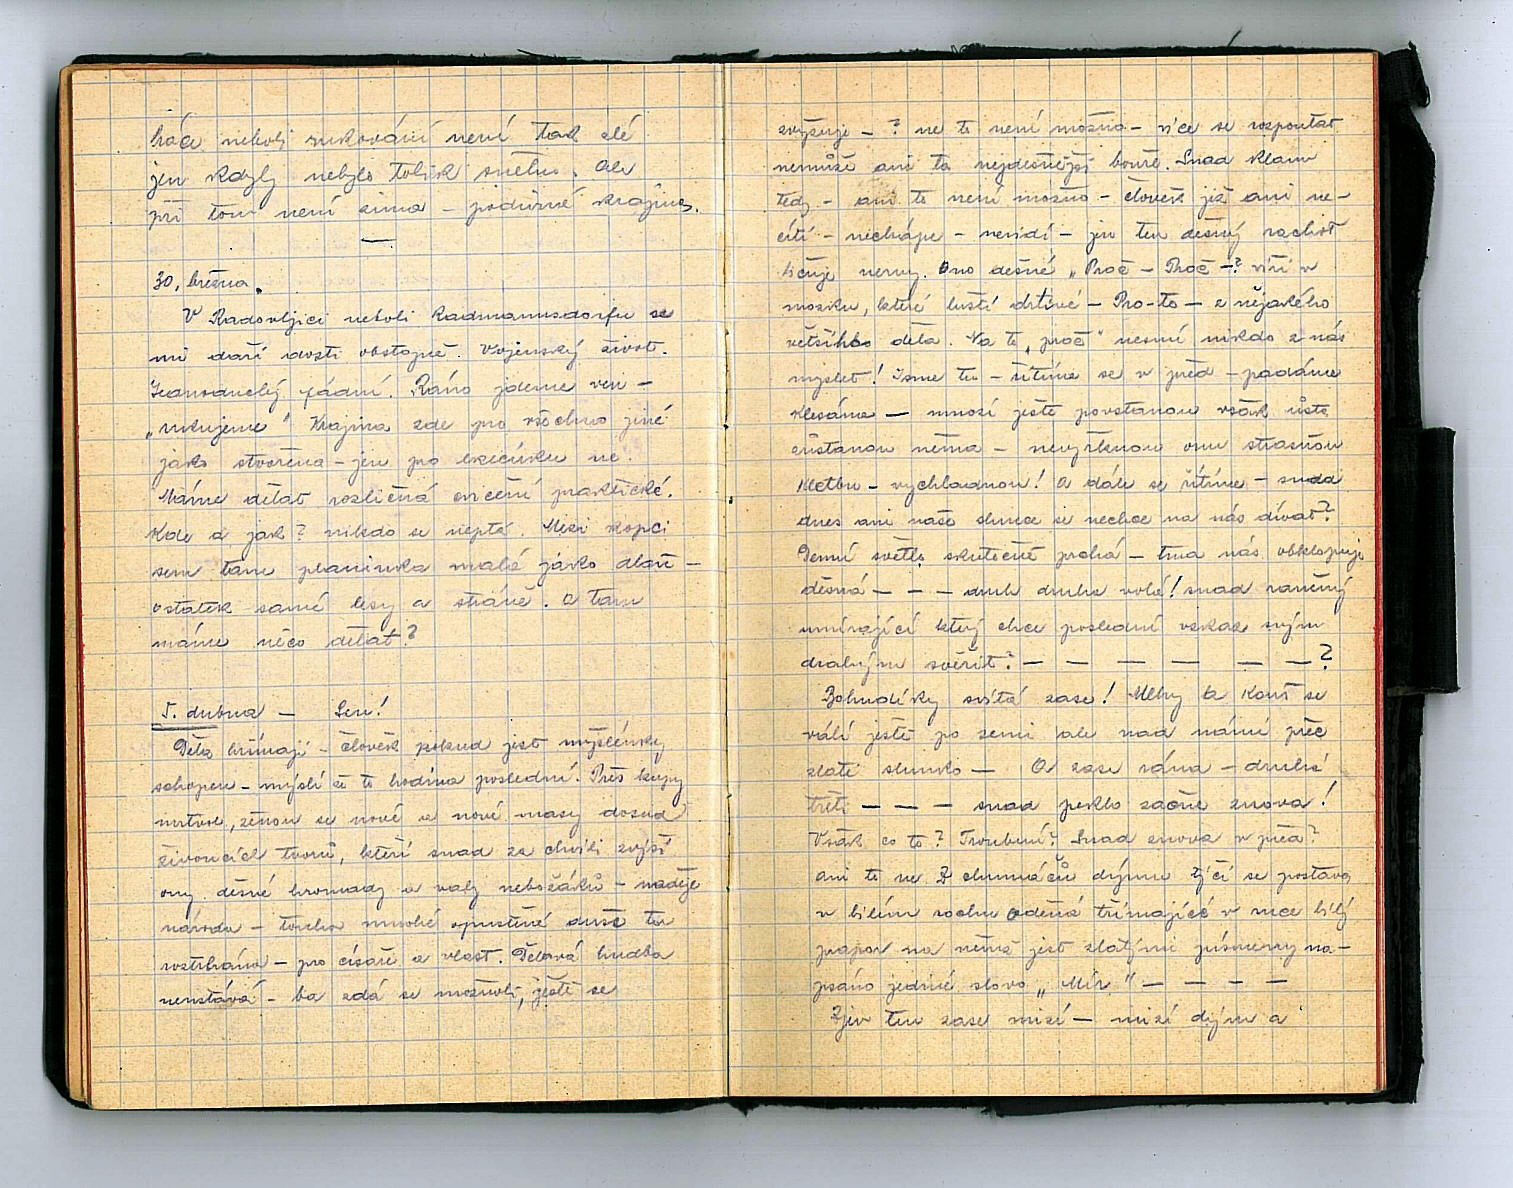 háce neboli rukování není tak zlé
jen kdyby nebylo tolik sněhu. Ale
při tom není zima – podivné krajiny.
30. března.
V Radovljici neboli Radmannsdorfu se
mi daří dosti obstojně. Vojenský život.
Jednoduchý fádní. Ráno jdeme ven –
„rukujeme" Krajina zde pro všechno jiné
jako stvořena – jen pro ne.
Máme dělat rozličná cvičení praktické.
Kde a jak? nikdo se neptá. Mezi kopci
sem tam planinka malá jako dlaň –
ostatek samé lesy a stráně. A tam
máme něco dělat?
5. dubna – Sen!
Děla hřímají – člověk pokud jest myšlénky
schopen – myslí že to hodina poslední. Přes kupy
mrtvol, ženou se nové a nové masy dosud
živoucích tvorů, kteří snad za chvíli zvýší
ony děsné hromady a valy nebožáků – naděje
národu – touha mnohé opuštěné duše tu
roztrhána – pro císaře a vlast. Dělová hudba
neustává – ba zdá se možnoli, ještě se
zvyšuje – ? ne to není možno – více se rozpoutat
nemůže ani ta nejděsnější bouře. Snad klam
tedy – ani to není možno – člověk již ani ne-
cítí – nechápe – nevidí – jen ten děsný rachot
bičuje nervy. Ono děsné „Proč – Proč –? víří v
mozku, které luští drtivé – Pro-to – z nějakého
většího děla. Na to „proč" nesmí nikdo z nás
myslet! Jsme tu – řítíme se v před – padáme
klesáme — mnozí ještě povstanou však ústa
zůstanou němá – nevyřknou onu strašnou
kletbu – vychladnou! A dále se řítíme – snad
dnes ani naše slunce si nechce na nás dívat?
Denní světlo skutečně prchá – tma nás obklopuje
děsná — — — druh druha volá! snad raněný
umírající který chce poslední vzkaz svým
drahým svěřit? — — — — — — ?
Bohudíky svítá zase! Mlhy a kouř se
válí ještě po zemi ale nad námi přec
zlaté slunko — A zase rána – druhá
třetí — — — snad peklo začne znova!
Však co to? Troubení? Snad znova v před?
ani to ne. Z chumáčů dýmu tyčí se postava
v bílém rochu oděná třímající v ruce bílý
prapor na němž jest zlatými písmeny na-
psáno jediné slovo „Mír" — — — —
Zjev ten zase mizí — mizí dým a